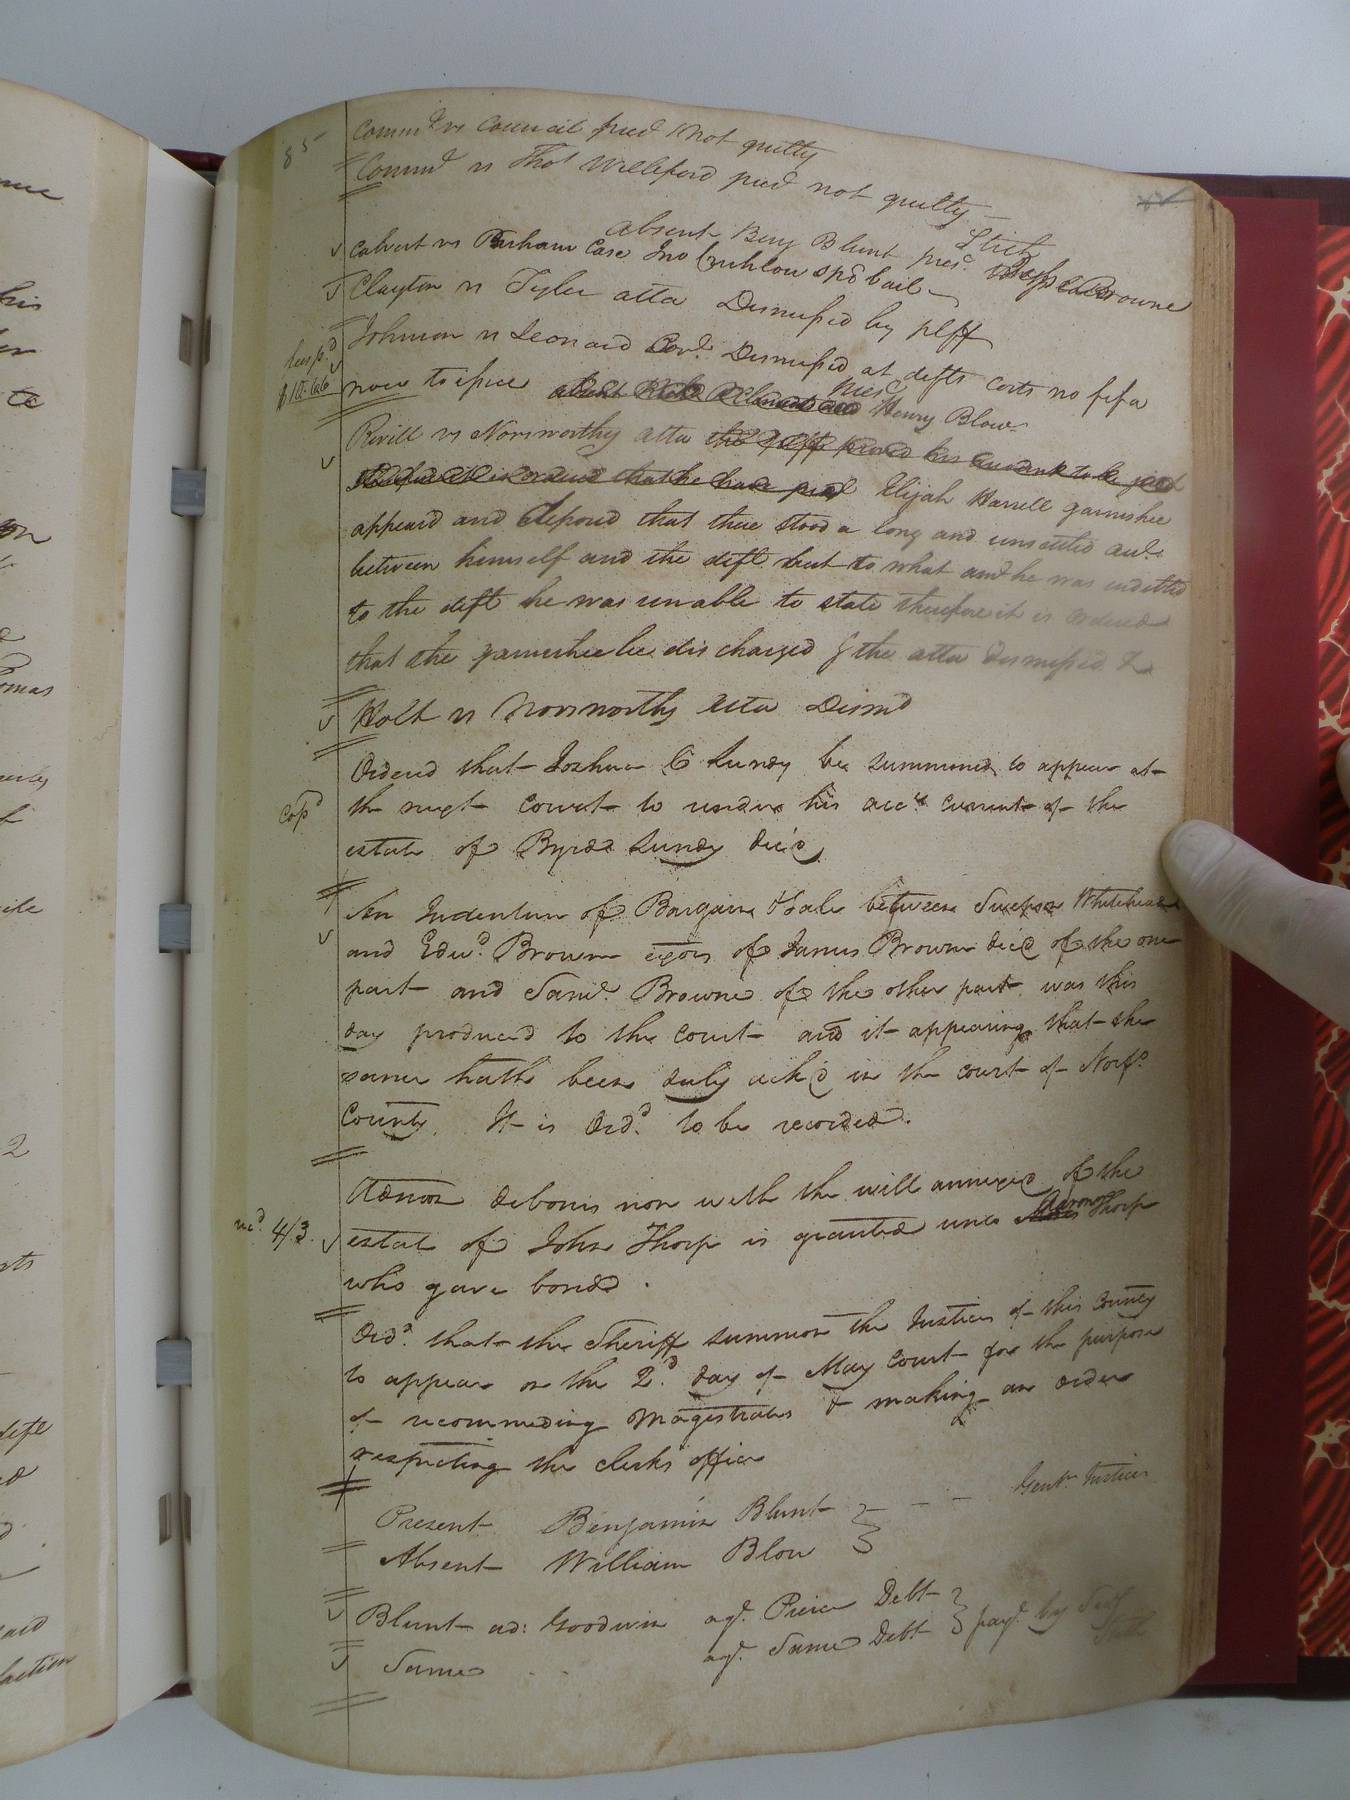 85
Comm'th vs Council pled Not guilty
Comm'd vs Thos Williford pled not guilty
Absent Benj Blunt pres.
Calvert vs Parham Case Jno spd bail Browne
Clayton vs Tyler atta Dismissed by plff
Johnson vs Leonard Cov.t Dismissed at defts costs no fi fa
now to issue pres.t Henry Blow
Revill vs Norsworthy atta
Elijah Harrell garnishee
appeard and deposed that there stood a long and unsettled
between himself and the deft but to what amt he was indetted
to the deft he was unable to state therefore it is ordered
that the garnishee be discharged & the atta dismissed
Holt vs Norsworthy Atta Dism'd
Ordered that Joshua C Lundy be summoned to appear at
Cop.d
the next Court to render his acc.t Current of the
estate of Byrd Lundy dec'd
An Indenture of Bargain & Sale between Whitehead
and Edw.d Browne exors of James Browne dec'd of the one
part and Sam.l Browne of the other part was this
day produced to the Court and it appearing that the
same hath been duly ack'd in the court of Norf.
County. It is Ord.d to be recorded.
Admon debonis non with the will annexed of the
rec.d 4/3.
estate of John Thorp is granted unto Aaron Thorp
who gave bond.
Ord.d that the Sheriff summon the Justices of this County
to appear on the 2.d day of May Court for the purpose
of recommeding Magistrates & making an order
respecting the clerks office
Present Benjamin Blunt } - - - Gent.n Justices
Absent William Blow
Blunt ad: Goodwin ag.t Pierce Debt } pay.t by
Same ag.t Same Debt